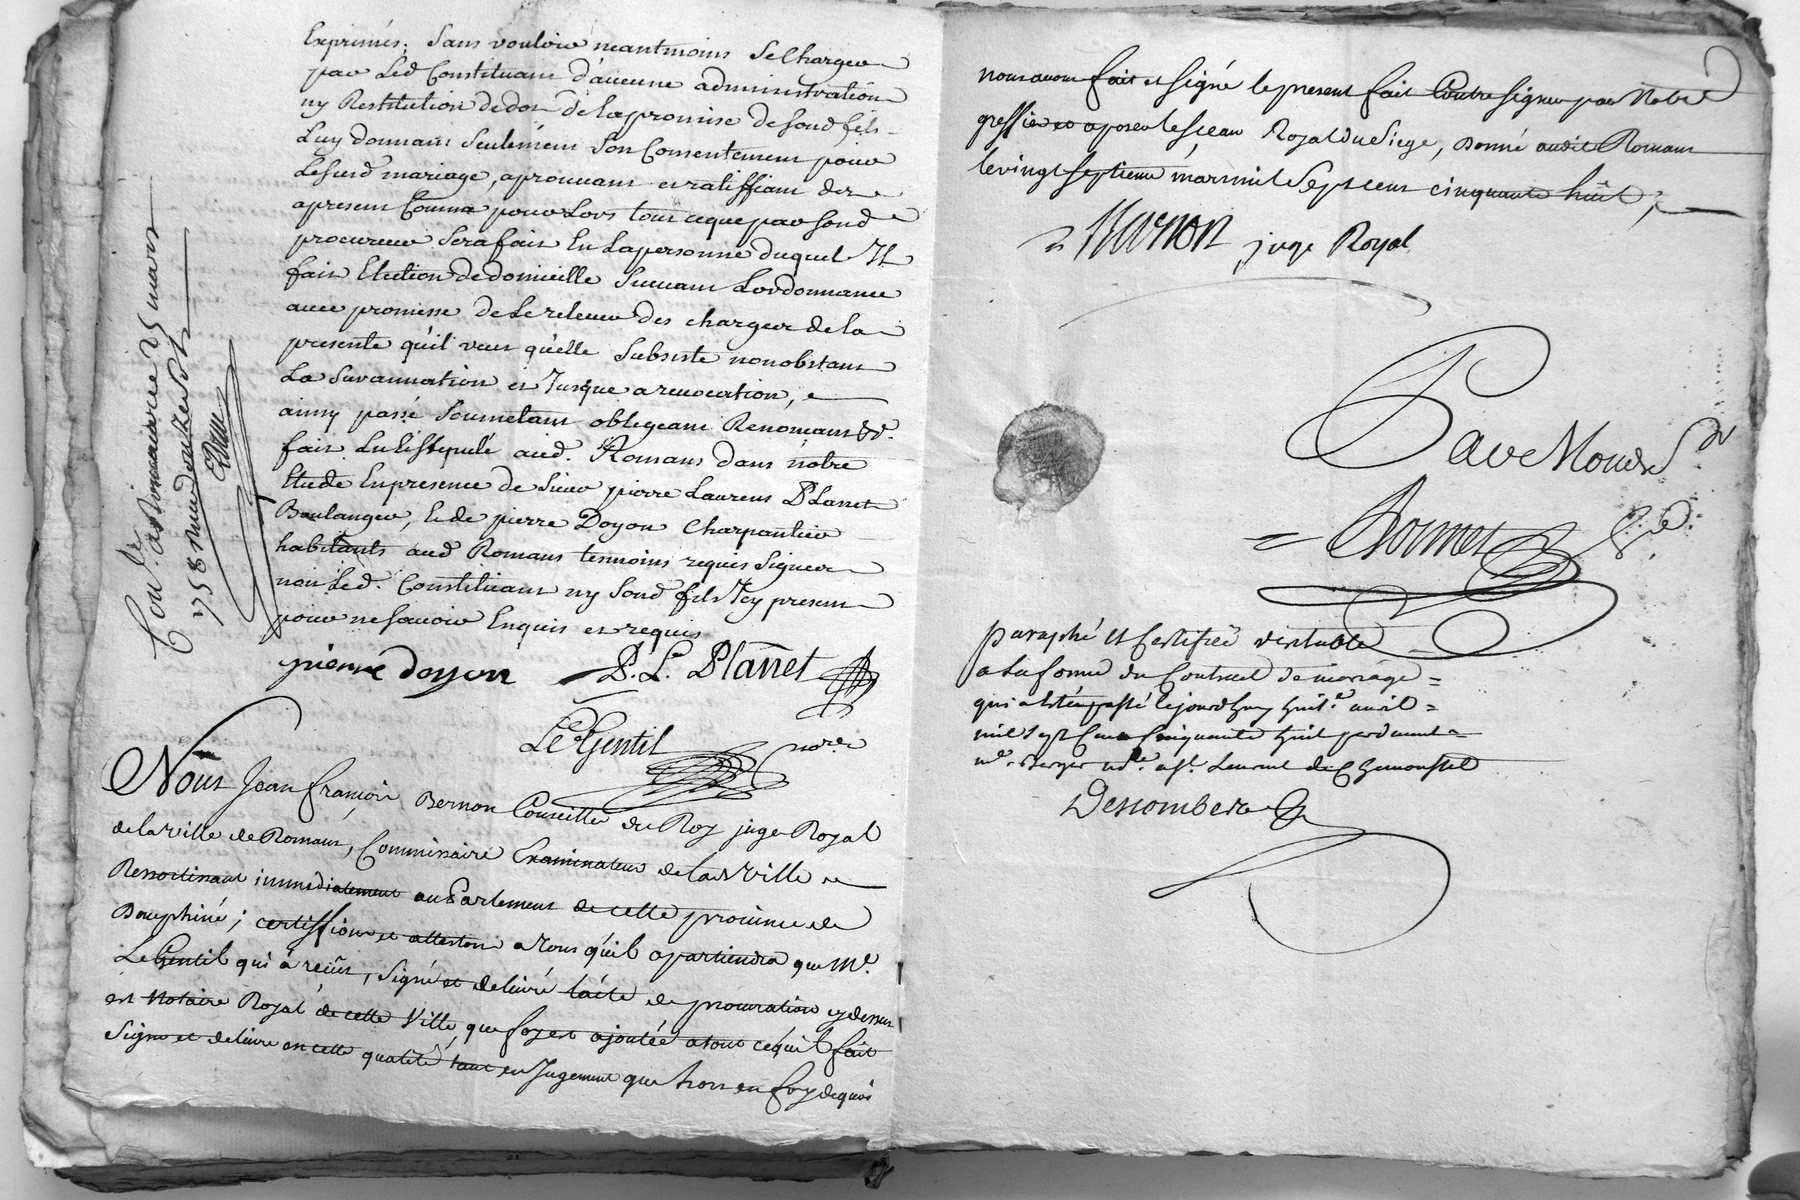 Exprimés; Sans vouloir neantmoins Se Charger
par Led Constituant d'aucune administration
ny Restitution de dot de la promise de Sond fils
Luy donnant Seulement Son Consentement pour
Lesusd mariage, aprouvant et ratiffiant des
apresent Comme pour Lors tout ceque par Sond
procureur Sera fait En La personne duquel Il
fait Election de domicille Suivant Lordonnance
avec promesse de Le relever des charges de la
presente qu'il veut qu'elle Subsiste nonobstant
La Surannation et Jusque a revocation,
ainsy passé Soumettant obligeant Renonceant &c.
fait Lu Estipulé aud. Romans dans nôtre
Etude En presence de Sieur pierre Laurens Planet
Boulanger, & de pierre Doyon Charpantier
habitants aud Romans tesmoins requis Signer
non Led. Constituant ny Sond fils Icy present
pour ne Scavoir Enquis et requis
pierre doyon P. L. Planet
Le Gentil no.re
Con.lé a Romans ce 25 mars
1758
Nous Jean François Bernon Conseiller du Roy juge Royal
de la ville de Romans, Commissaire Examinateur de lad Ville
Ressortissant immediatement au Parlement de cette province de
Dauphiné; certiffions et attestons a tous qu'il apartiendra que M.e
Le Gentil qui à reçûs, Signé et delivré lacte de procuration cy dessus
est Notaire Royal de cette Ville, que foy est ajoutée a tout ce qu'il fait
Signe et delivre en cette qualité tant en Jugement que hors en foy dequoi
nous avons fait et Signé le present fait Contre Signer par Notre
greffier et aposer le Sceau Royal du Siege, Donné audit Romans
le vingt Septieme mars mil Sept cens cinquante huit;
Bernon juge Royal
Par Mond S.r
paraphé et Certiffié veritable
a la forme du Contract de mariage
qui a Eté passé le jourdhuy huit.e avril
mil Sept Cens Cinquante huit pardevant
m.e Berger
Descombes